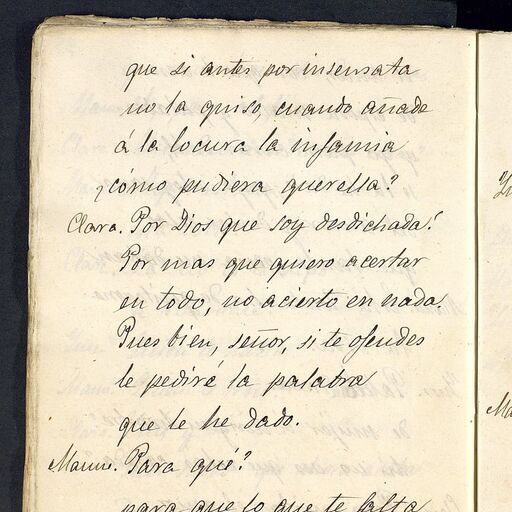 que si antes por insensata
no la quiso, cuando añade
á la locura la infamia
¿cómo pudiera querella?
Clara. Por Dios que soy desdichada!
Por mas que quiero acertar
en todo, no acierto en nada.
Pues bien, señor, si te ofendes
le pediré la palabra
que le he dado.
Manu. Para qué?
para que lo que te falta